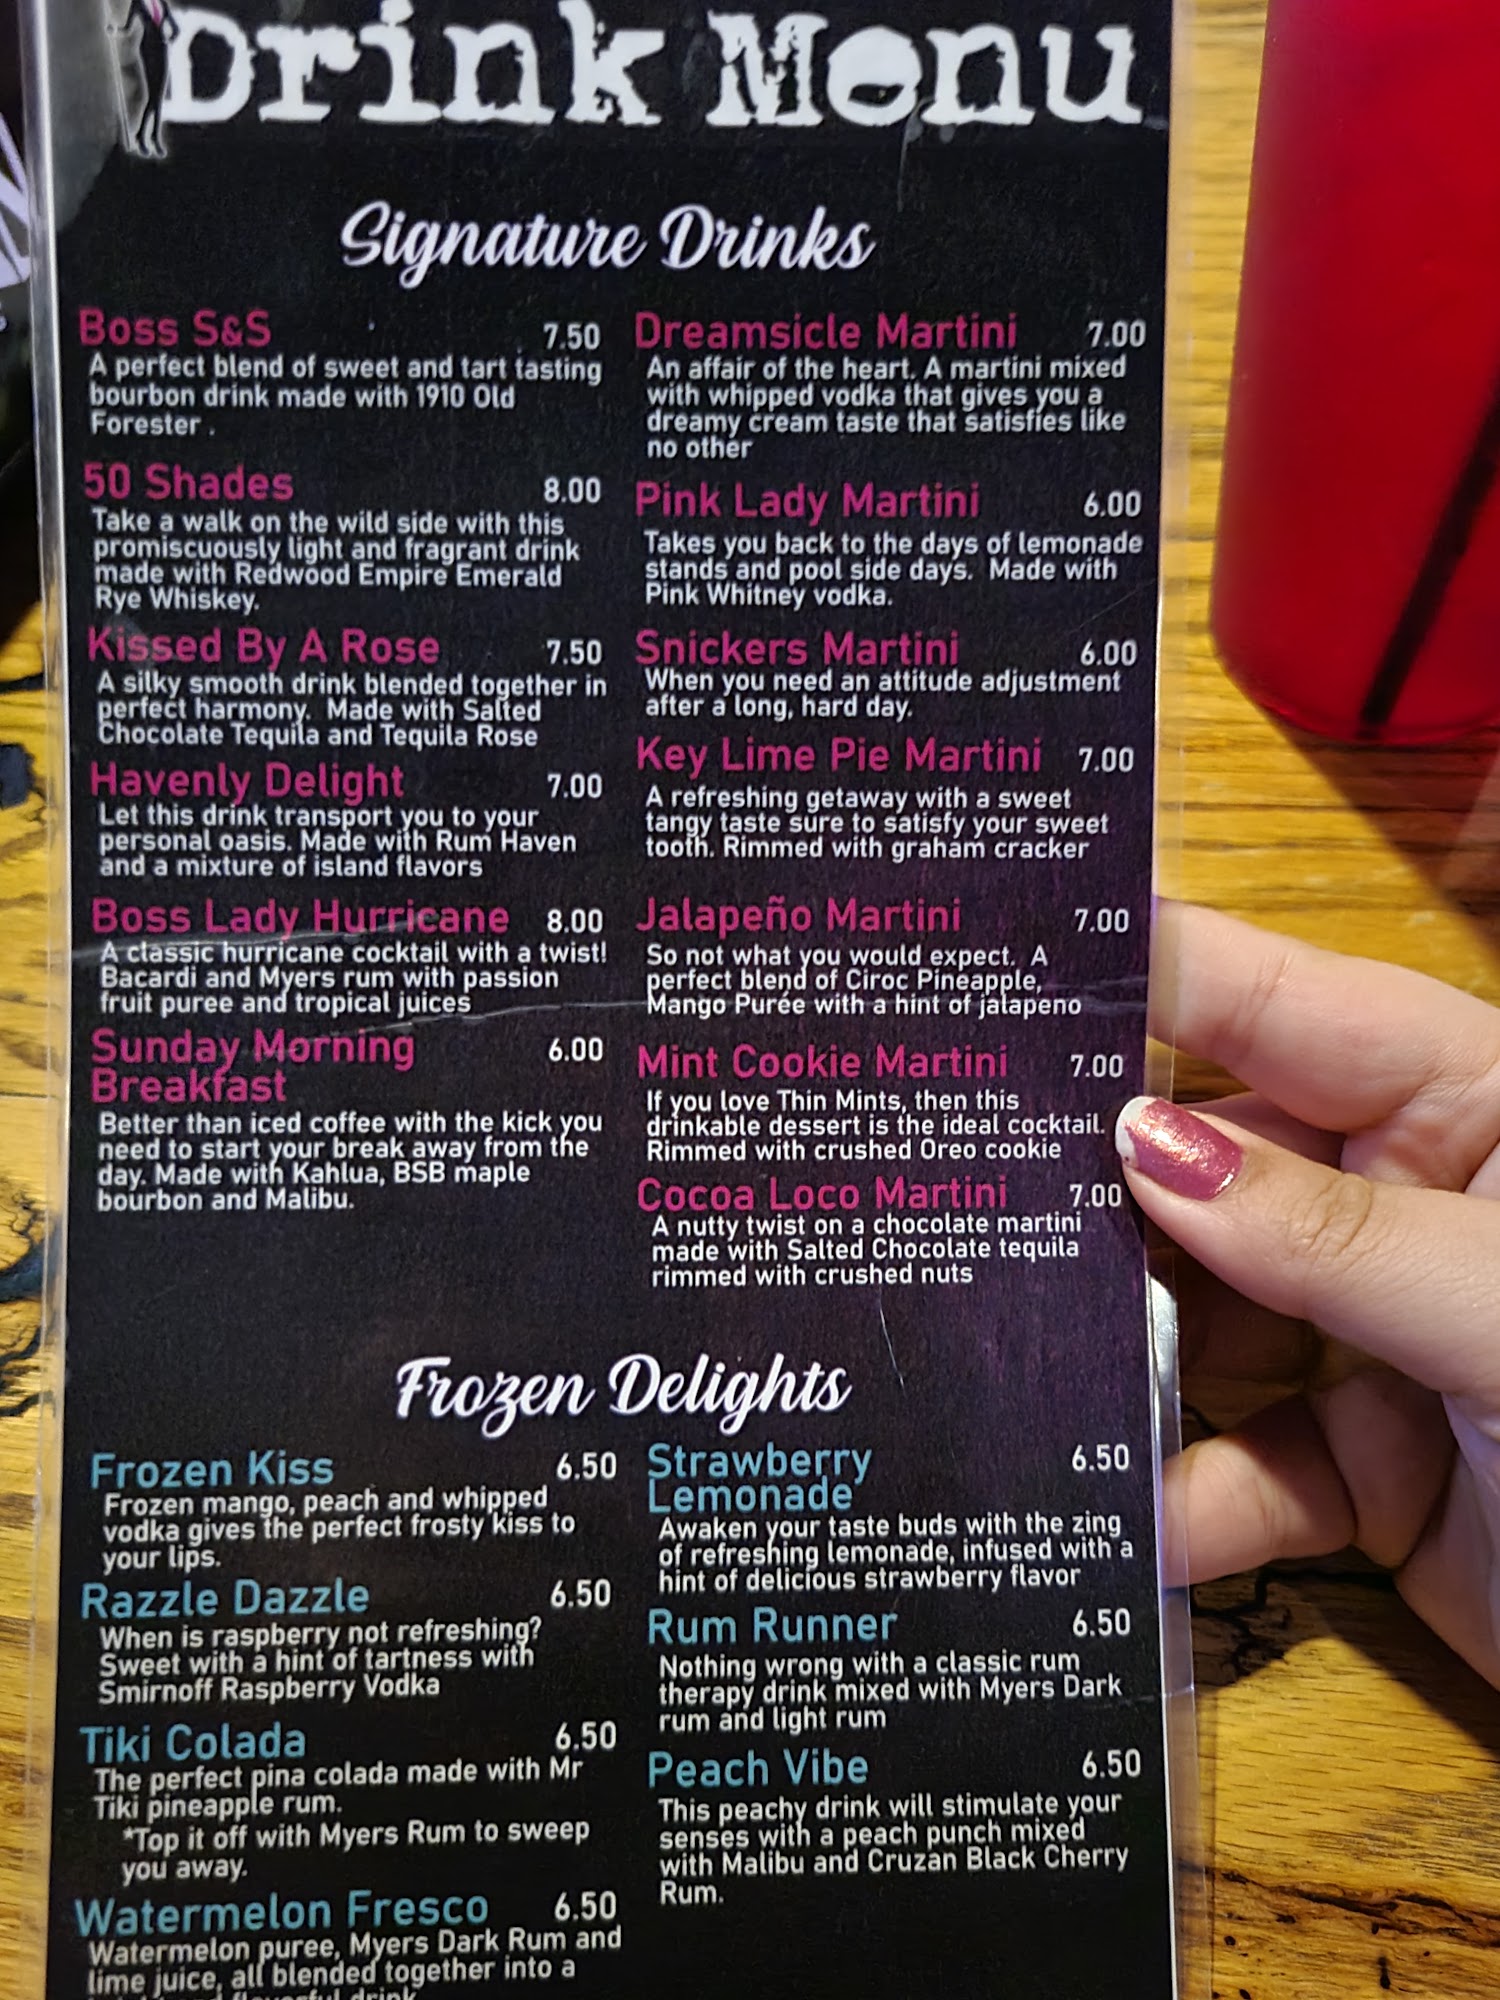 Drink Menu
Signature Drinks
Boss S&S 7.50
A perfect blend of sweet and tart tasting
bourbon drink made with 1910 Old
Forester .
50 Shades 8.00
Take a walk on the wild side with this
promiscuously light and fragrant drink
made with Redwood Empire Emerald
Rye Whiskey.
Kissed By A Rose 7.50
A silky smooth drink blended together in
perfect harmony. Made with Salted
Chocolate Tequila and Tequila Rose
Havenly Delight 7.00
Let this drink transport you to your
personal oasis. Made with Rum Haven
and a mixture of island flavors
Boss Lady Hurricane 8.00
A classic hurricane cocktail with a twist!
Bacardi and Myers rum with passion
fruit puree and tropical juices
Sunday Morning 6.00
Breakfast
Better than iced coffee with the kick you
need to start your break away from the
day. Made with Kahlua, BSB maple
bourbon and Malibu.
Dreamsicle Martini 7.00
An affair of the heart. A martini mixed
with whipped vodka that gives you a
dreamy cream taste that satisfies like
no other
Pink Lady Martini 6.00
Takes you back to the days of lemonade
stands and pool side days. Made with
Pink Whitney vodka.
Snickers Martini 6.00
When you need an attitude adjustment
after a long, hard day.
Key Lime Pie Martini 7.00
A refreshing getaway with a sweet
tangy taste sure to satisfy your sweet
tooth. Rimmed with graham cracker
Jalapeño Martini 7.00
So not what you would expect. A
perfect blend of Ciroc Pineapple,
Mango Purée with a hint of jalapeno
Mint Cookie Martini 7.00
If you love Thin Mints, then this
drinkable dessert is the ideal cocktail.
Rimmed with crushed Oreo cookie
Cocoa Loco Martini 7.00
A nutty twist on a chocolate martini
made with Salted Chocolate tequila
rimmed with crushed nuts
Frozen Delights
Frozen Kiss 6.50
Frozen mango, peach and whipped
vodka gives the perfect frosty kiss to
your lips.
Razzle Dazzle 6.50
When is raspberry not refreshing?
Sweet with a hint of tartness with
Smirnoff Raspberry Vodka
Tiki Colada 6.50
The perfect pina colada made with Mr
Tiki pineapple rum.
*Top it off with Myers Rum to sweep
you away.
Watermelon Fresco 6.50
Watermelon puree, Myers Dark Rum and
lime juice, all blended together into a
flavorful drink
Strawberry 6.50
Lemonade
Awaken your taste buds with the zing
of refreshing lemonade, infused with a
hint of delicious strawberry flavor
Rum Runner 6.50
Nothing wrong with a classic rum
therapy drink mixed with Myers Dark
rum and light rum
Peach Vibe 6.50
This peachy drink will stimulate your
senses with a peach punch mixed
with Malibu and Cruzan Black Cherry
Rum.